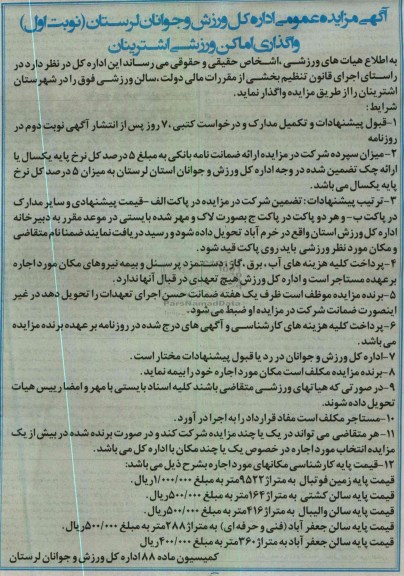 آگهی مزایده عمومی اداره کل ورزش و جوانان لرستان (نوبت اول)
واگذاری اماکن ورزشی اشترینان
به اطلاع هیات های ورزشی، اشخاص حقیقی و حقوقی می رساند این اداره کل در نظر دارد در
راستای اجرای قانون تنظیم بخشی از مقررات مالی دولت، سالن ورزشی فوق را در شهرستان
اشترینان را از طریق مزایده واگذار نماید.
شرایط:
۱-قبول پیشنهادات و تکمیل مدارک و درخواست کتبی، ۷ روز پس از انتشار آگهی نوبت دوم در
روزنامه
۲-میزان سپرده شرکت در مزایده ارائه ضمانت نامه بانکی به مبلغ ۵ درصد کل نرخ پایه یکسال یا
ارائه چک تضمین شده در وجه اداره کل ورزش و جوانان استان لرستان به میزان ۵ درصد کل نرخ
پایه یکسال می باشد.
۳-ترتیب پیشنهادات: تضمین شرکت در مزایده در پاکت الف -قیمت پیشنهادی و سایر مدارک
در پاکت ب- و هر دو پاکت در پاکت ج بصورت لاک و مهر شده بایستی در موعد مقرر به دبیرخانه
اداره کل ورزش استان واقع در خرم آباد تحویل داده شود و رسید دریافت نمایند ضمنا نام متقاضی
و مکان مورد نظر ورزشی باید روی پاکت قید شود.
۴-پرداخت کلیه هزینه های آب، برق، گاز، دستمزد پرسنل و بیمه نیروهای مکان مورد اجاره
بر عهده مستاجر است و اداره کل ورزش هیچ تعهدی در قبال آنها ندارد.
۵-برنده مزایده موظف است ظرف یک هفته ضمانت حسن اجرای تعهدات را تحویل دهد در غیر
اینصورت ضمانت شرکت در مزایده او ضبط می شود.
۶-پرداخت کلیه هزینه های کارشناسی و آگهی های درج شده در روزنامه بر عهده برنده مزایده
می باشد.
۷-اداره کل ورزش و جوانان در رد یا قبول پیشنهادات مختار است.
۸-برنده مزایده مکلف است مکان مورد اجاره خود را بیمه نماید.
۹-در صورتی که هیاتهای ورزشی متقاضی باشند کلیه اسناد بایستی با مهر و امضا رییس هیات
تحویل داده شوند.
۱۰-مستاجر مکلف است مفاد قرارداد را به اجرا در آورد.
۱۱-هر متقاضی می تواند در یک یا چند مزایده شرکت کند و در صورت برنده شده در بیش از یک
مزایده انتخاب مورد اجاره در خصوص یک یا چند مکان با اداره کل می باشد.
۱۲-قیمت پایه کارشناسی مکانهای مورد اجاره بشرح ذیل می باشد:
قیمت پایه زمین فوتبال به متراژ ۹۵۲۲ متر به مبلغ ۱/۰۰۰/۰۰۰ ریال.
قیمت پایه سالن کشتی به متراژ ۱۶۴ متر به مبلغ ۵۰۰/۰۰۰ ریال.
قیمت پایه سالن والیبال به متراژ ۴۱۶ متر به مبلغ ۵۰۰/۰۰۰ ریال.
قیمت پایه سالن جعفر آباد (فنی و حرفه ای) به متراژ ۲۸۸ متر به مبلغ ۵۰۰/۰۰۰ ریال.
قیمت پایه سالن جعفر آباد به متراژ ۳۶۰ متر به مبلغ ۴۰۰/۰۰۰ ریال
کمیسیون ماده ۸۸ اداره کل ورزش و جوانان لرستان